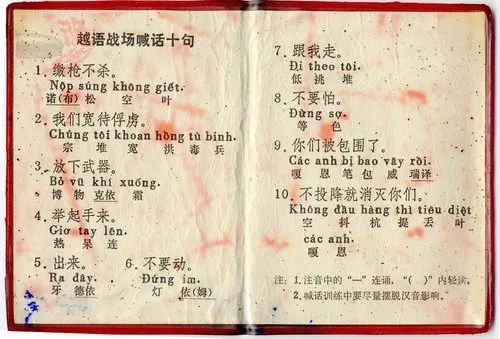 越语战场喊话十句
1. 缴枪不杀。
Nộp súng không giết.
诺(布)松 空 叶
2. 我们宽待俘虏。
Chúng tôi khoan hồng tù binh.
宗 堆 宽 洪 毒 兵
3. 放下武器。
Bỏ vũ khí xuống.
博 物 克依 霜
4. 举起手来。
Giơ tay lên.
热 呆 连
5. 出来。 6. 不要动。
Ra đây. Đứng im.
牙 德依 灯 依(姆)
7. 跟我走。
Đi theo tôi.
低 挑 堆
8. 不要怕。
Đừng sợ.
等 色
9. 你们被包围了。
Các anh bị bao vây rồi.
嘎 恩 笔 包 威 瑞译
10. 不投降就消灭你们。
Không đầu hàng thì tiêu diệt
空 抖 杭 提 丢 叶
các anh.
嘎 恩
注: 1. 注音中的“—”连诵,“( )”内轻读。
2. 喊话训练中要尽量摆脱汉音影响。